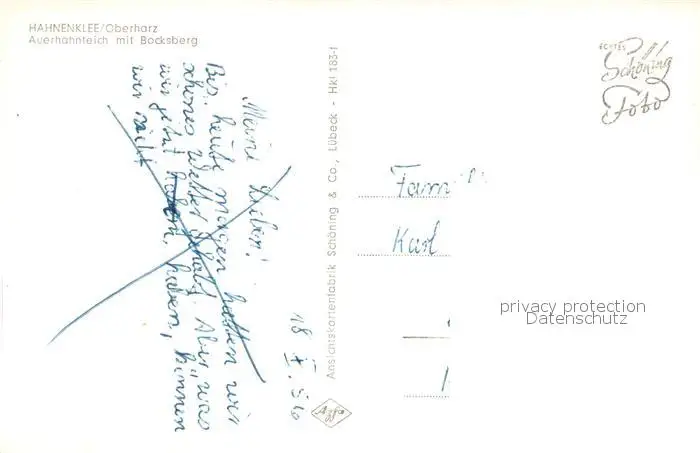 HAHNENKLEE/Oberharz
Auerhahnteich mit Bocksberg
18. X. 56
Meine Lieben!
Bis heute morgen hatten wir
schönes Wetter gehabt. Aber was
wir jetzt haben, haben, können
wir nicht
Ansichtskartenfabrik Schöning & Co., Lübeck - Hkl 183-f
Agfa
ECHTES
Schöning
Foto
Fam
Karl
privacy protection
Datenschutz